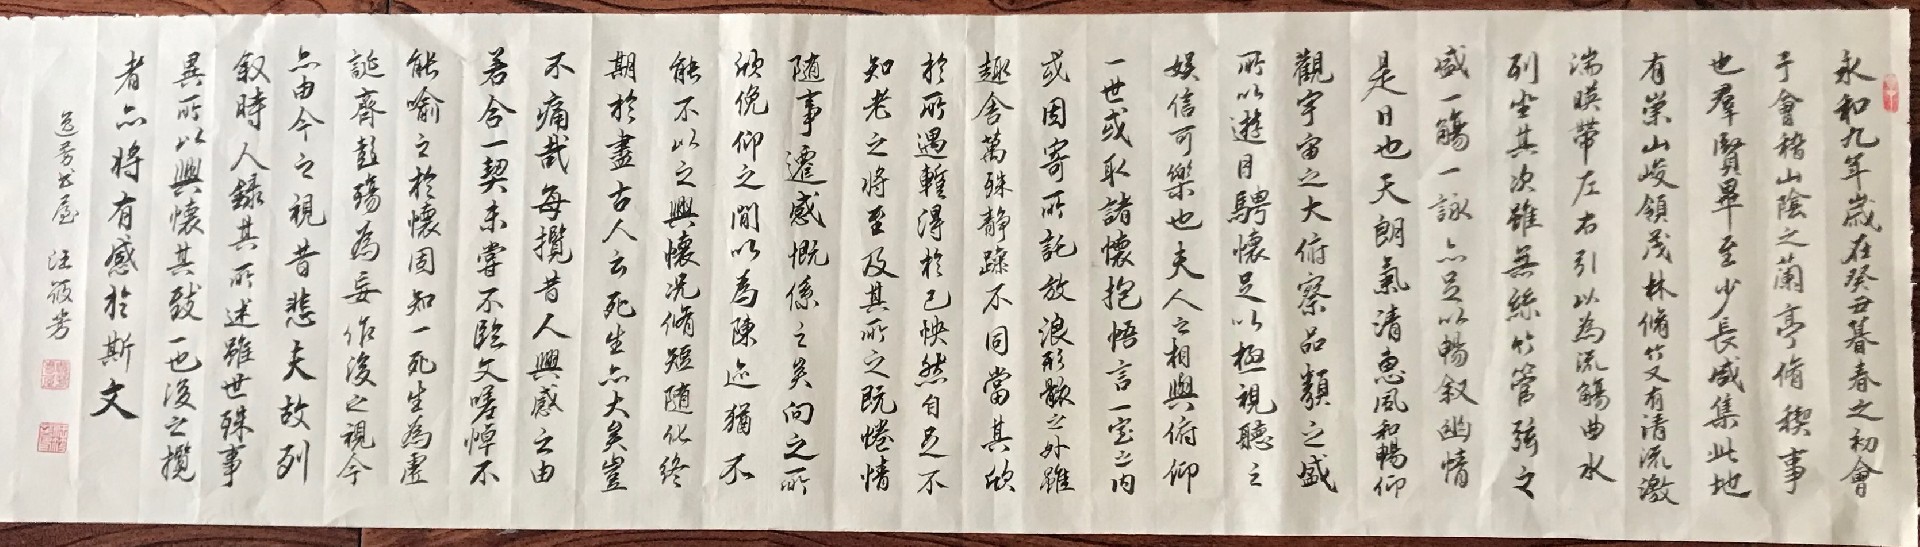 永和九年歲在癸丑暮春之初會
于會稽山陰之蘭亭脩稧事
也羣賢畢至少長咸集此地
有崇山峻領茂林脩竹又有清流激
湍暎帶左右引以為流觴曲水
列坐其次雖無絲竹管弦之
盛一觴一詠亦足以暢叙幽情
是日也天朗氣清惠風和暢仰
觀宇宙之大俯察品類之盛
所以遊目騁懷足以極視聽之
娛信可樂也夫人之相與俯仰
一世或取諸懷抱悟言一室之內
或因寄所託放浪形骸之外雖
趣舍萬殊静躁不同當其欣
於所遇蹔得於己怏然自足不
知老之將至及其所之既惓情
随事遷感慨係之矣向之所
欣俛仰之閒以為陳迹猶不
能不以之興懷况脩短随化終
期於盡古人云死生亦大矣豈
不痛哉每攬昔人興感之由
若合一契未嘗不臨文嗟悼不
能喻之於懷固知一死生為虛
誕齊彭殤為妄作後之視今
亦由今之視昔悲夫故列
叙時人錄其所述雖世殊事
異所以興懷其致一也後之攬
者亦將有感於斯文